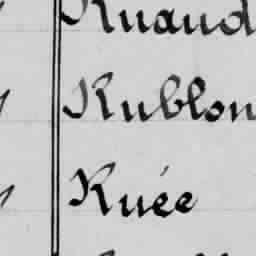 Ruaud
Rublon
Ruée